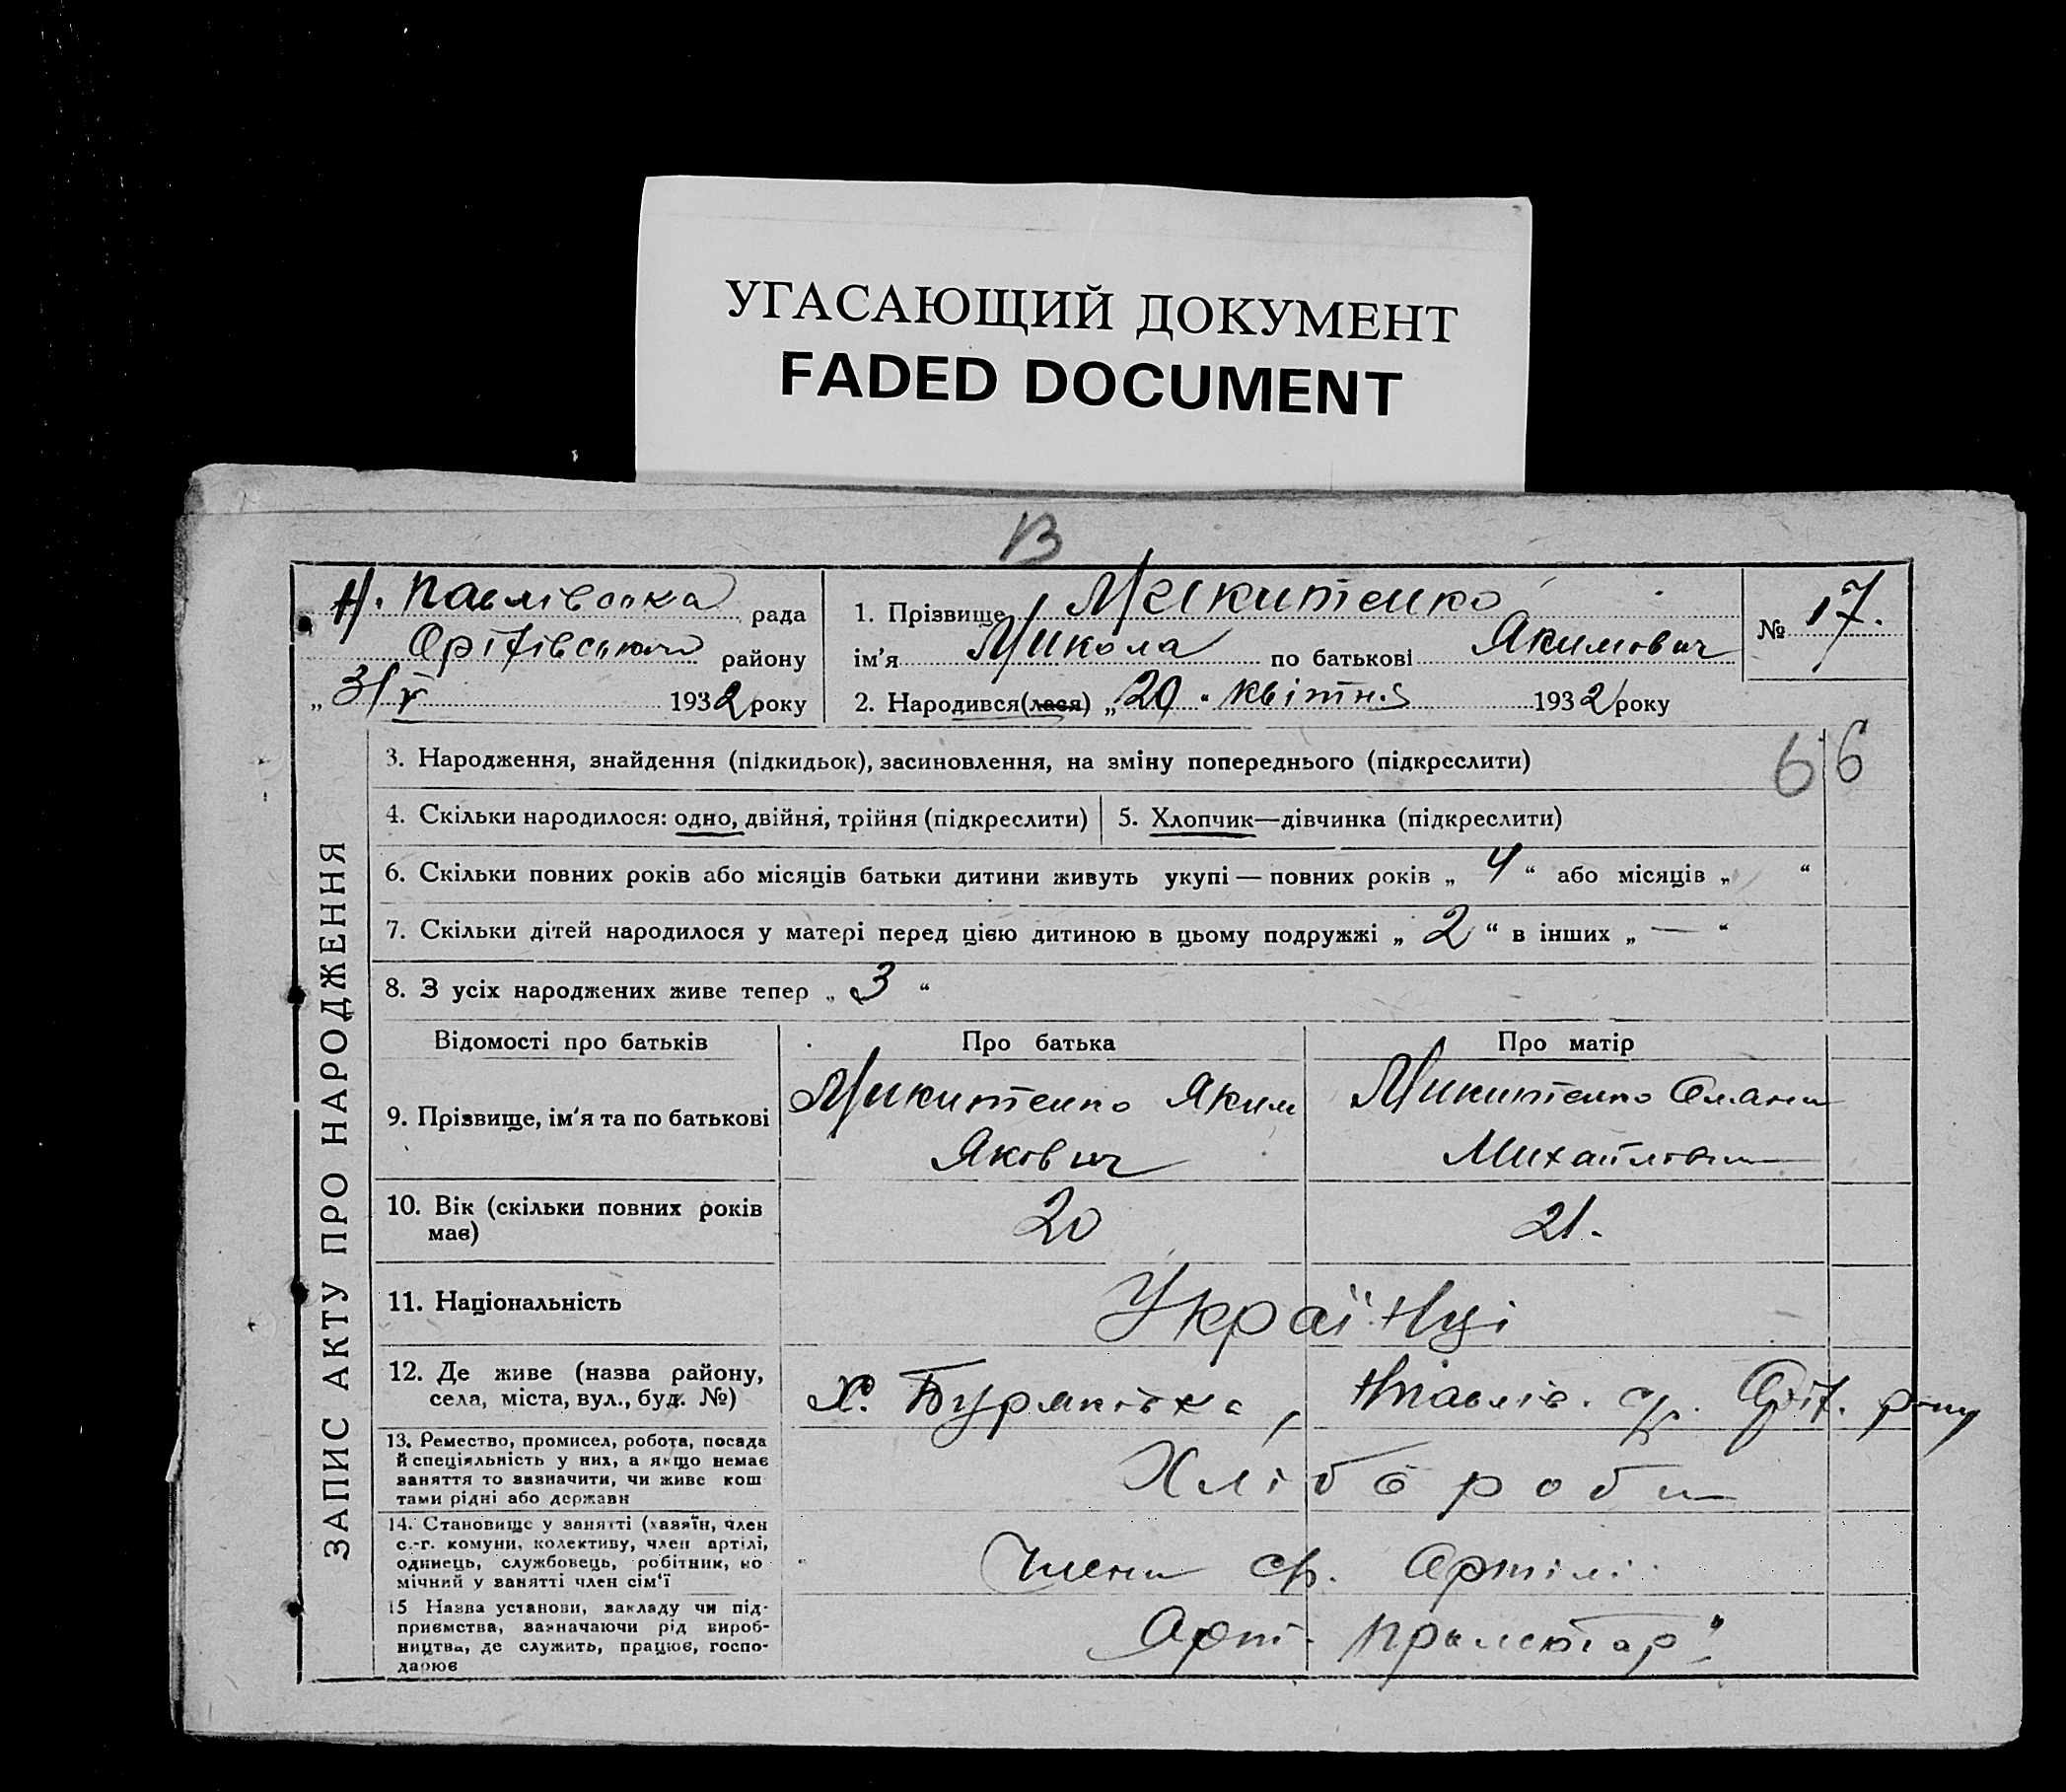 УГАСАЮЩИЙ ДОКУМЕНТ
FADED DOCUMENT
13
Н. Павлівська рада
Оріхівського району
„ 31/V 1932 року
1. Прізвище Микитенко
ім'я Микола по батькові Якимович
№ 17.
2. Народився(лася) „20" квітня 1932 року
3. Народження, знайдення (підкидьок), засиновлення, на зміну попереднього (підкреслити)
66
4. Скільки народилося: одно, двійня, трійня (підкреслити)
5. Хлопчик—дівчинка (підкреслити)
6. Скільки повних років або місяців батьки дитини живуть укупі — повних років „ 4 “ або місяців „ “
7. Скільки дітей народилося у матері перед цією дитиною в цьому подружжі „ 2 “ в інших „ — “
8. З усіх народжених живе тепер „ 3 “
ЗАПИС АКТУ ПРО НАРОДЖЕННЯ
Відомості про батьків
Про батька
Про матір
9. Прізвище, ім'я та по батькові
Микитенко Яким
Яківич
Микитенко
Михайлівна
10. Вік (скільки повних років
має)
20
21.
11. Національність
Українці
12. Де живе (назва району,
села, міста, вул., буд. №)
Х. Буряківка, Нпавлів. с/р. Оріх. р-ну
13. Ремество, промисел, робота, посада
й спеціяльність у них, а якщо немає
заняття то зазначити, чи живе кош
тами рідні або держави
Хлібороби
14. Становище у занятті (хазяїн, член
с.-г. комуни, колективу, член артілі,
одинець, службовець, робітник, по
мічний у занятті член сім'ї
Члени с/г. Артілі
15 Назва установи, закладу чи під-
приємства, зазначаючи рід вироб-
ництва, де служить, працює, госпо-
дарює
Арт. Пролетар"